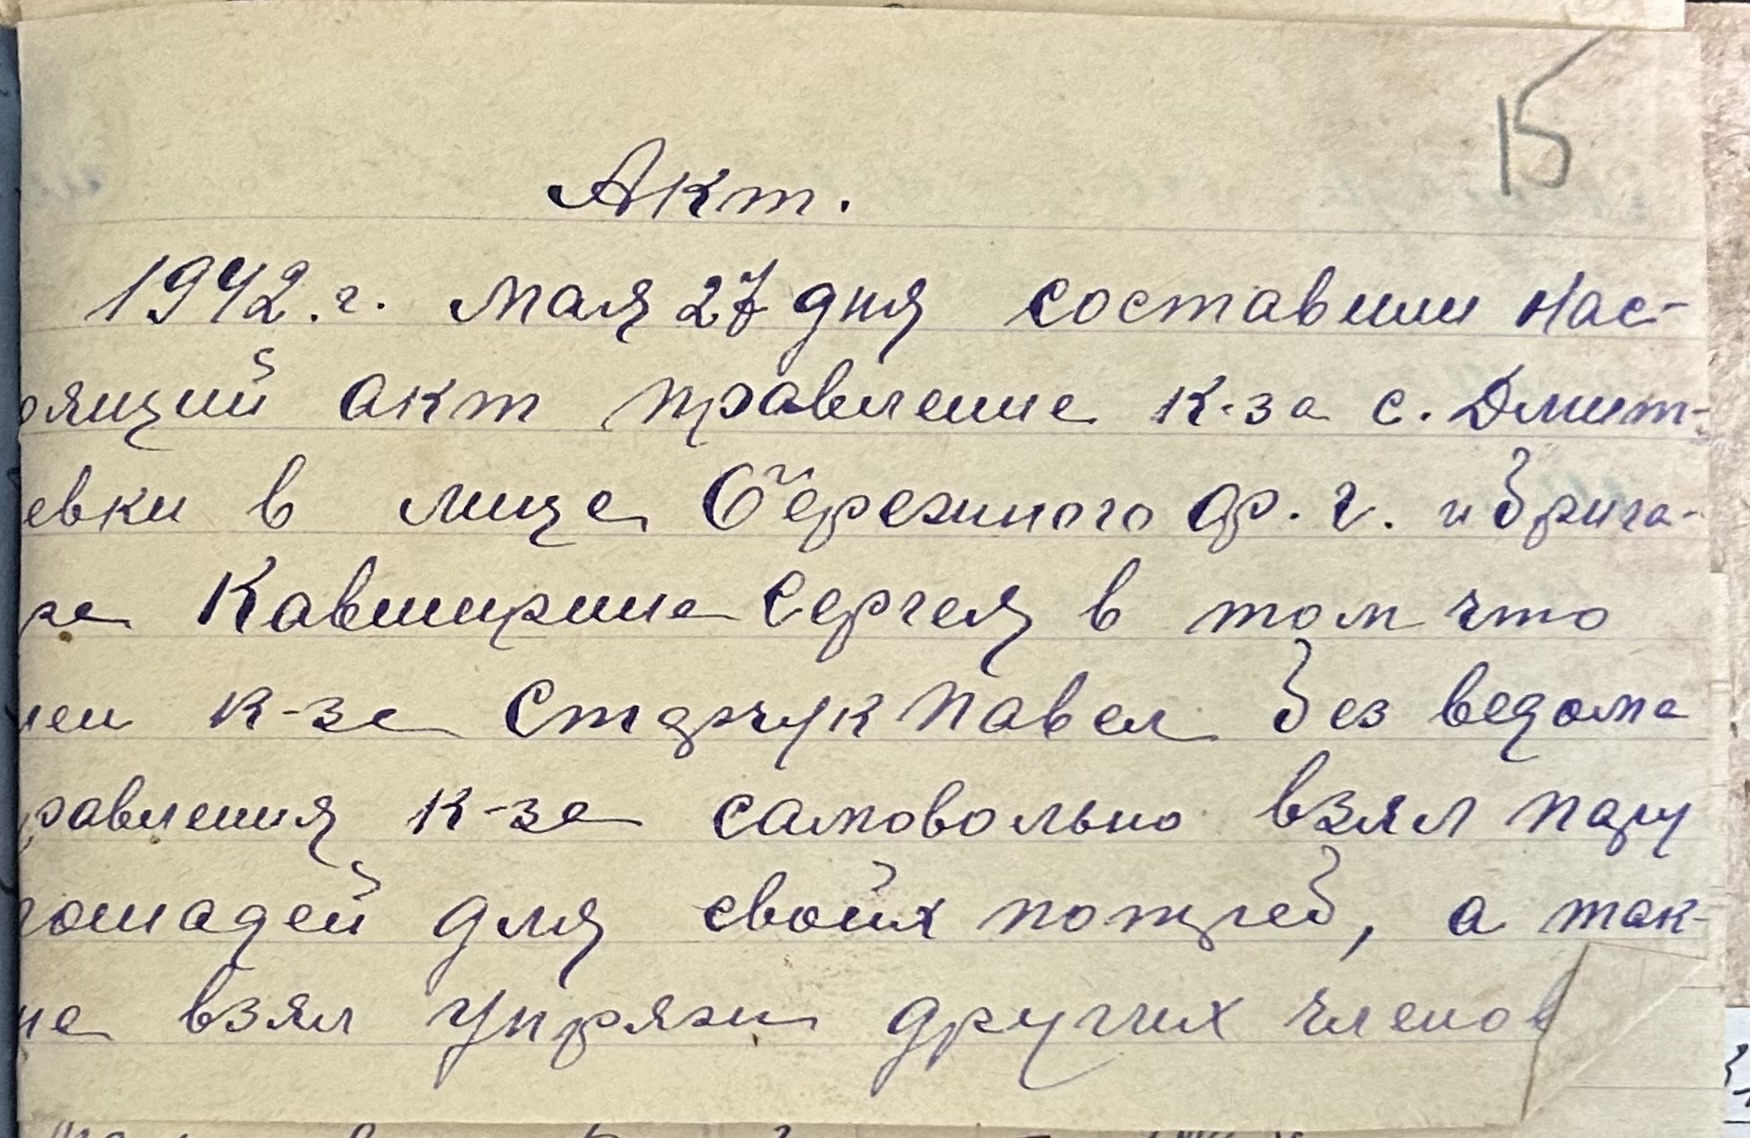 15
Акт.
1942.г. мая 27 дня составили нас-
оящий акт правление к-за с. Дмит-
евки в лице Бережного Ф. Г. и брига-
ра Кавширина Сергея в том что
лен к-за Старчук Павел без ведома
равления к-за самовольно взял пару
лошадей для своих потреб, а так-
же взял упряжи других членов